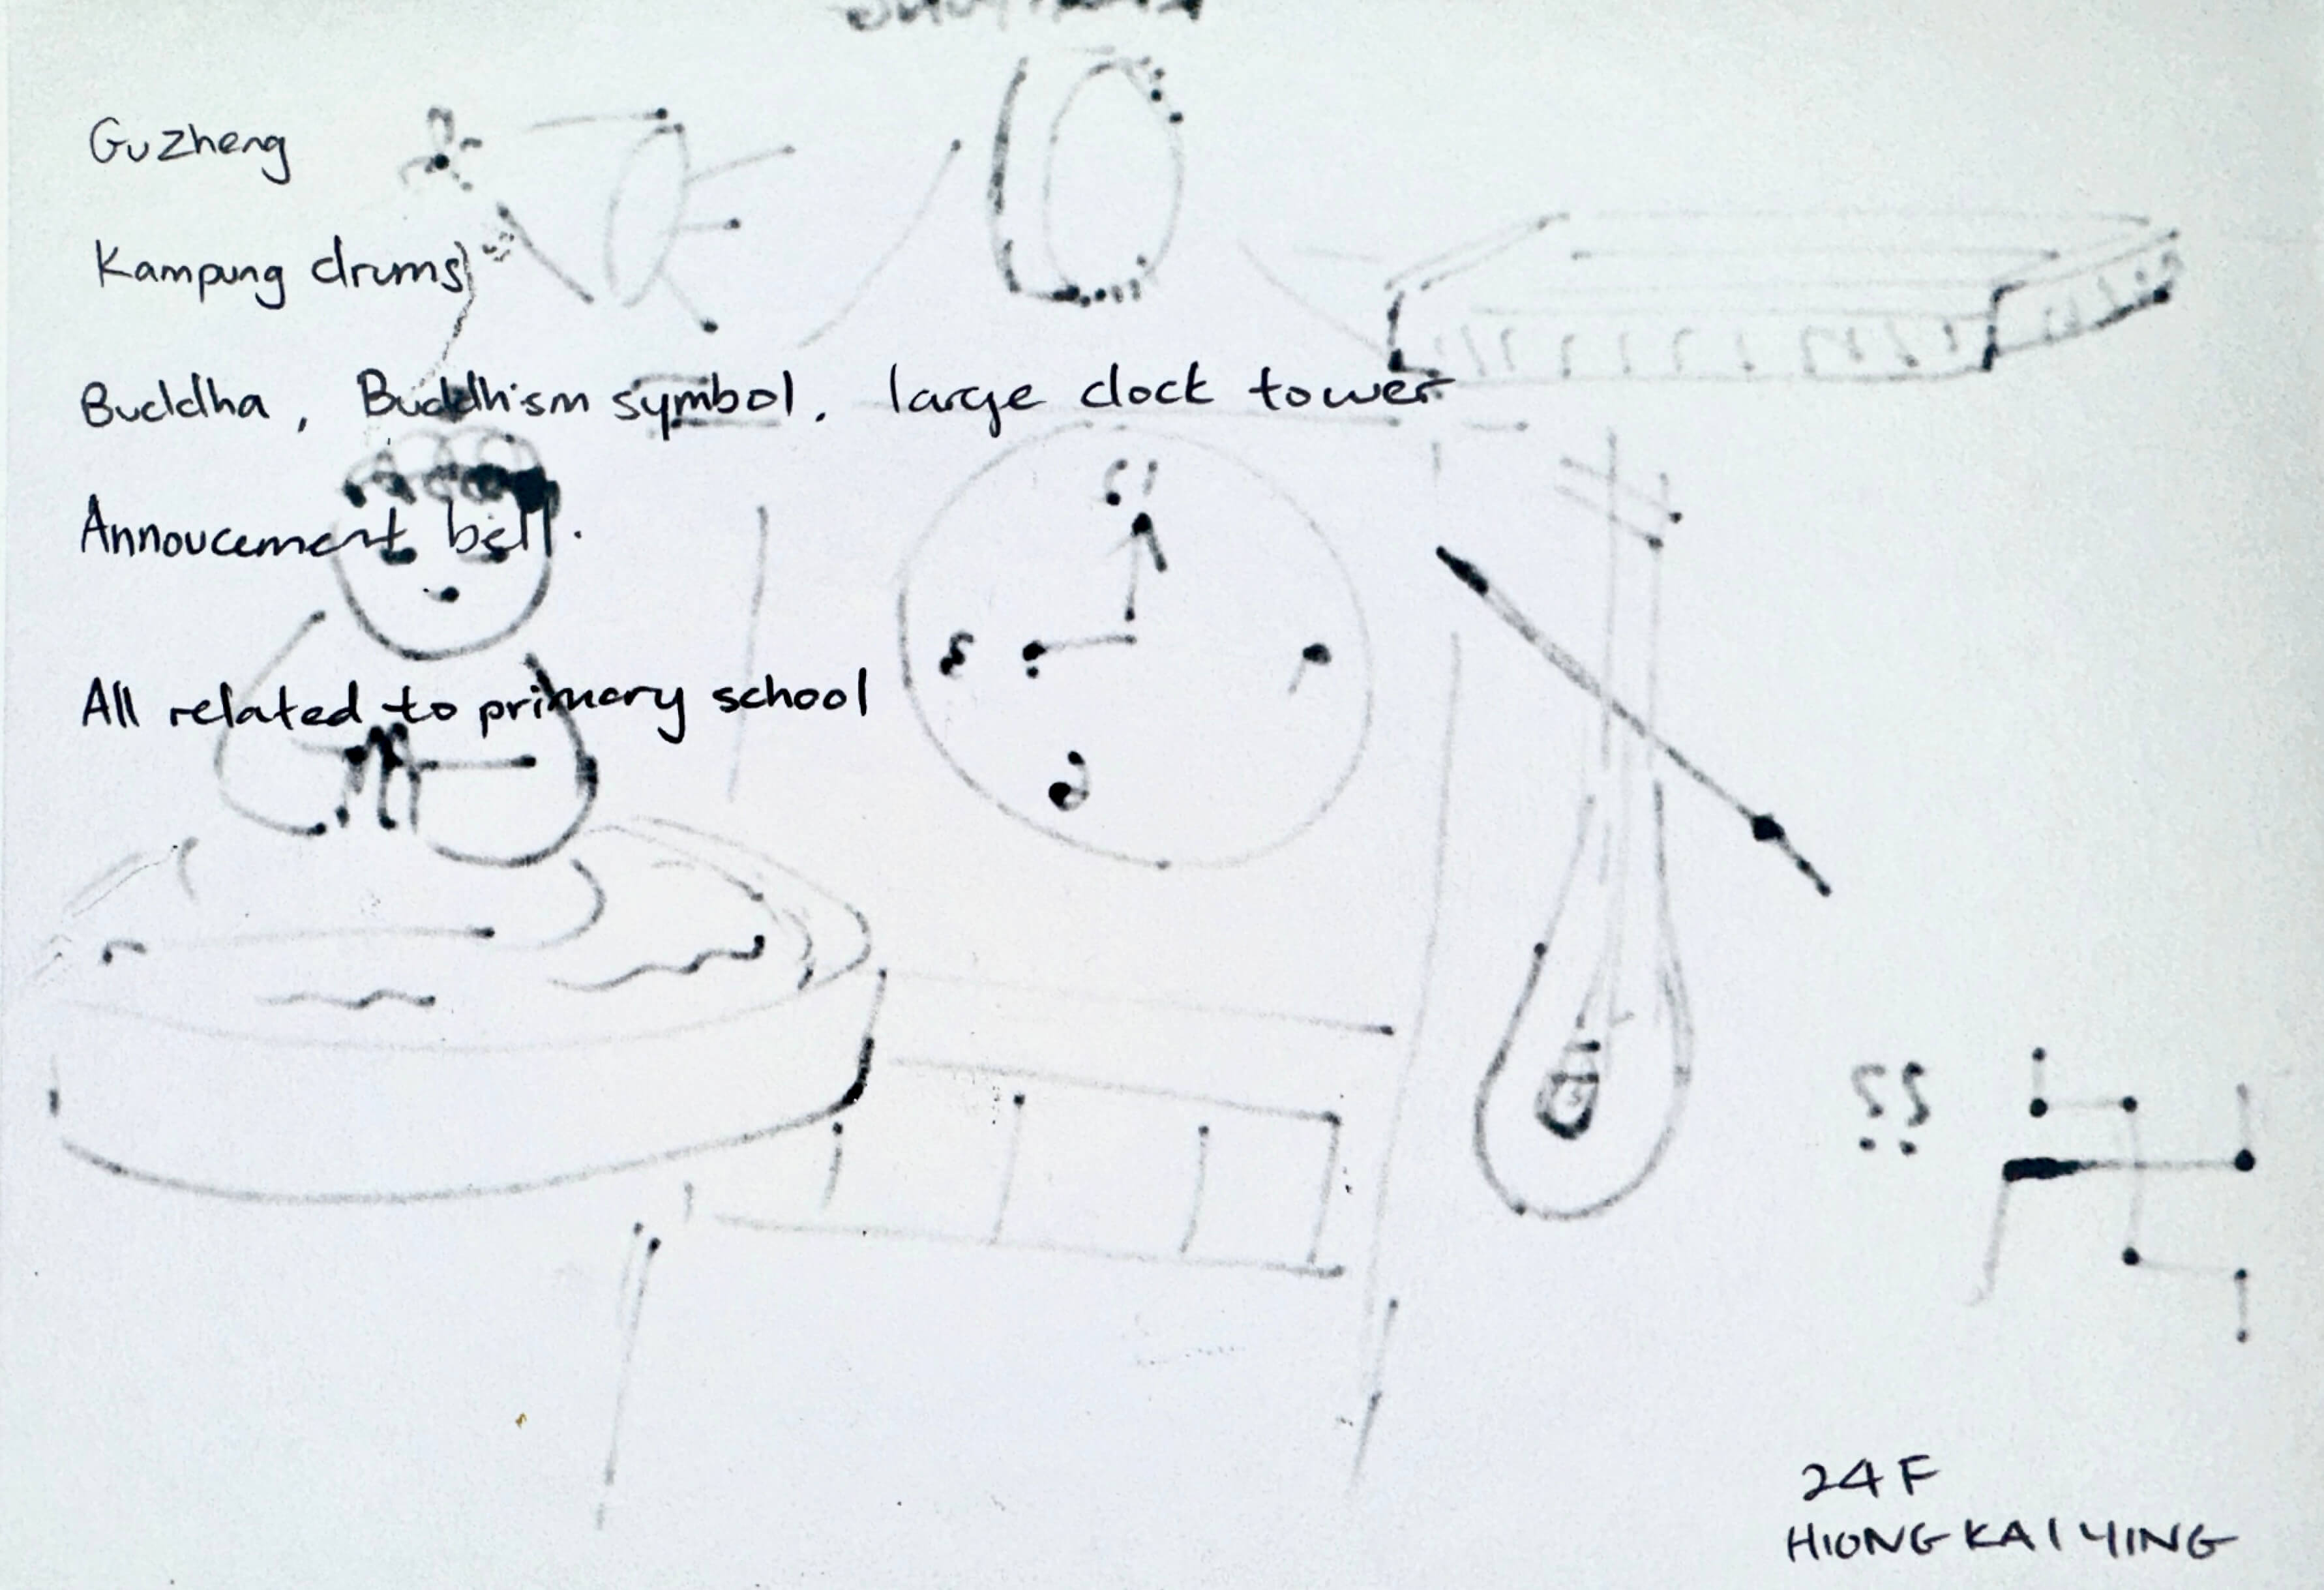 Guzheng
Kampung drums
Buddha, Buddhism symbol, large clock tower
Annoucement bell.
All related to primary school
24F
HIONG KAI YING